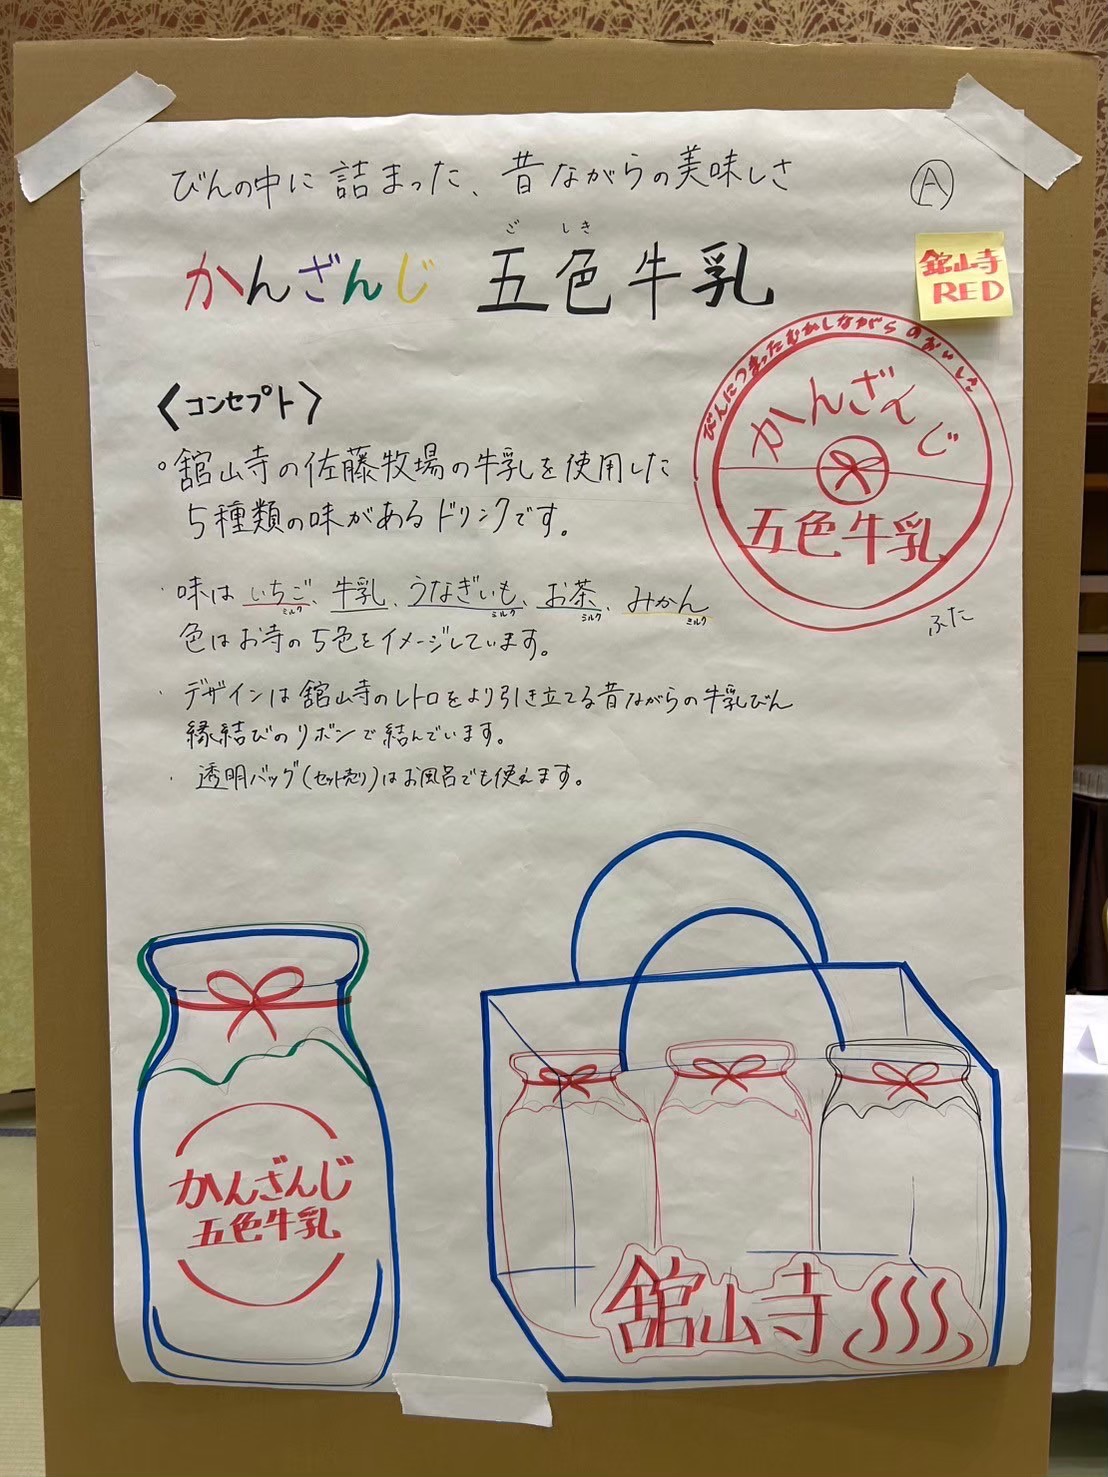 びんの中に詰まった、昔ながらの美味しさ
Ⓐ
ご しき
かんざんじ 五色牛乳
舘山寺
RED
びんにつまったむかしながらのおいしさ
かんざんじ
五色牛乳
ふた
〈コンセプト〉
。舘山寺の佐藤牧場の牛乳を使用した
5種類の味があるドリンクです。
・味はいちごミルク、牛乳、うなぎいもミルク、お茶ミルク、みかんミルク
色はお寺の5色をイメージしています。
・デザインは舘山寺のレトロをより引き立てる昔ながらの牛乳びん
縁結びのリボンで結んでいます。
・透明バッグ(セット売り)はお風呂でも使えます。
かんざんじ
五色牛乳
舘山寺♨